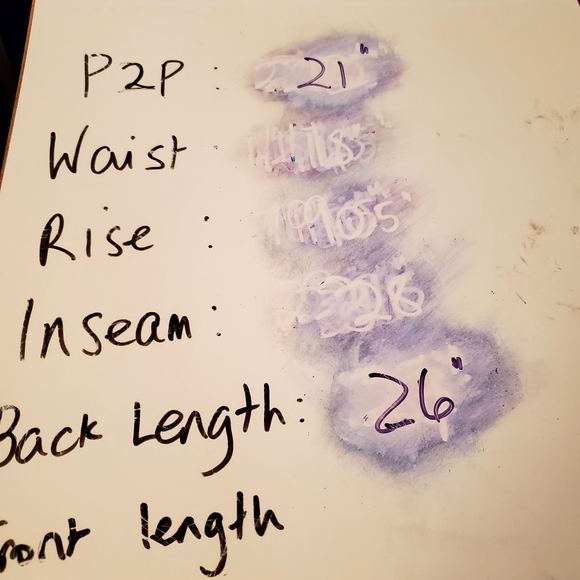 P2P : 21"
Waist :
Rise :
Inseam :
Back Length : 26"
Front length